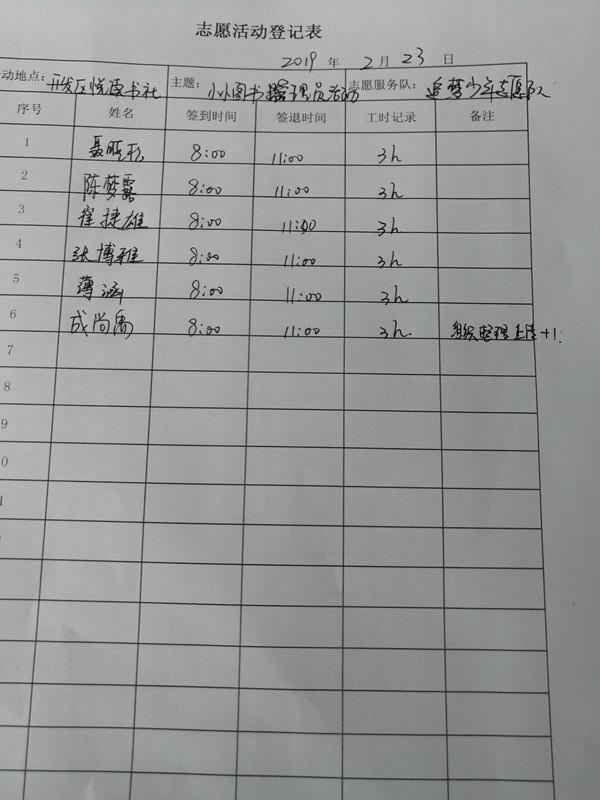 志愿活动登记表
2019 年 2 月 23 日
动地点: 开发区悦读书社 主题: 小小图书管理员活动 志愿服务队: 追梦少年志愿队
序号 姓名 签到时间 签退时间 工时记录 备注
1 聂 8:00 11:00 3h
2 陈梦露 8:00 11:00 3h
3 崔捷雄 8:00 11:00 3h
4 张博雅 8:00 11:00 3h
5 薄涵 8:00 11:00 3h
6 成尚禹 8:00 11:00 3h. 组织整理上传+1.
7
8
9
0
1